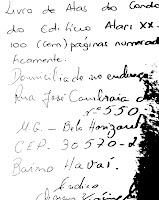 Livro de Atas do Condo
do Edifício Atari XX.
100 (cem) páginas numerad
ticamente.
Domicilia do no endereço
Rua José Cambraia d
nº 550-
M.G. - Belo Horizont
CEP. 30570-2
Bairro Havaí.
Síndico